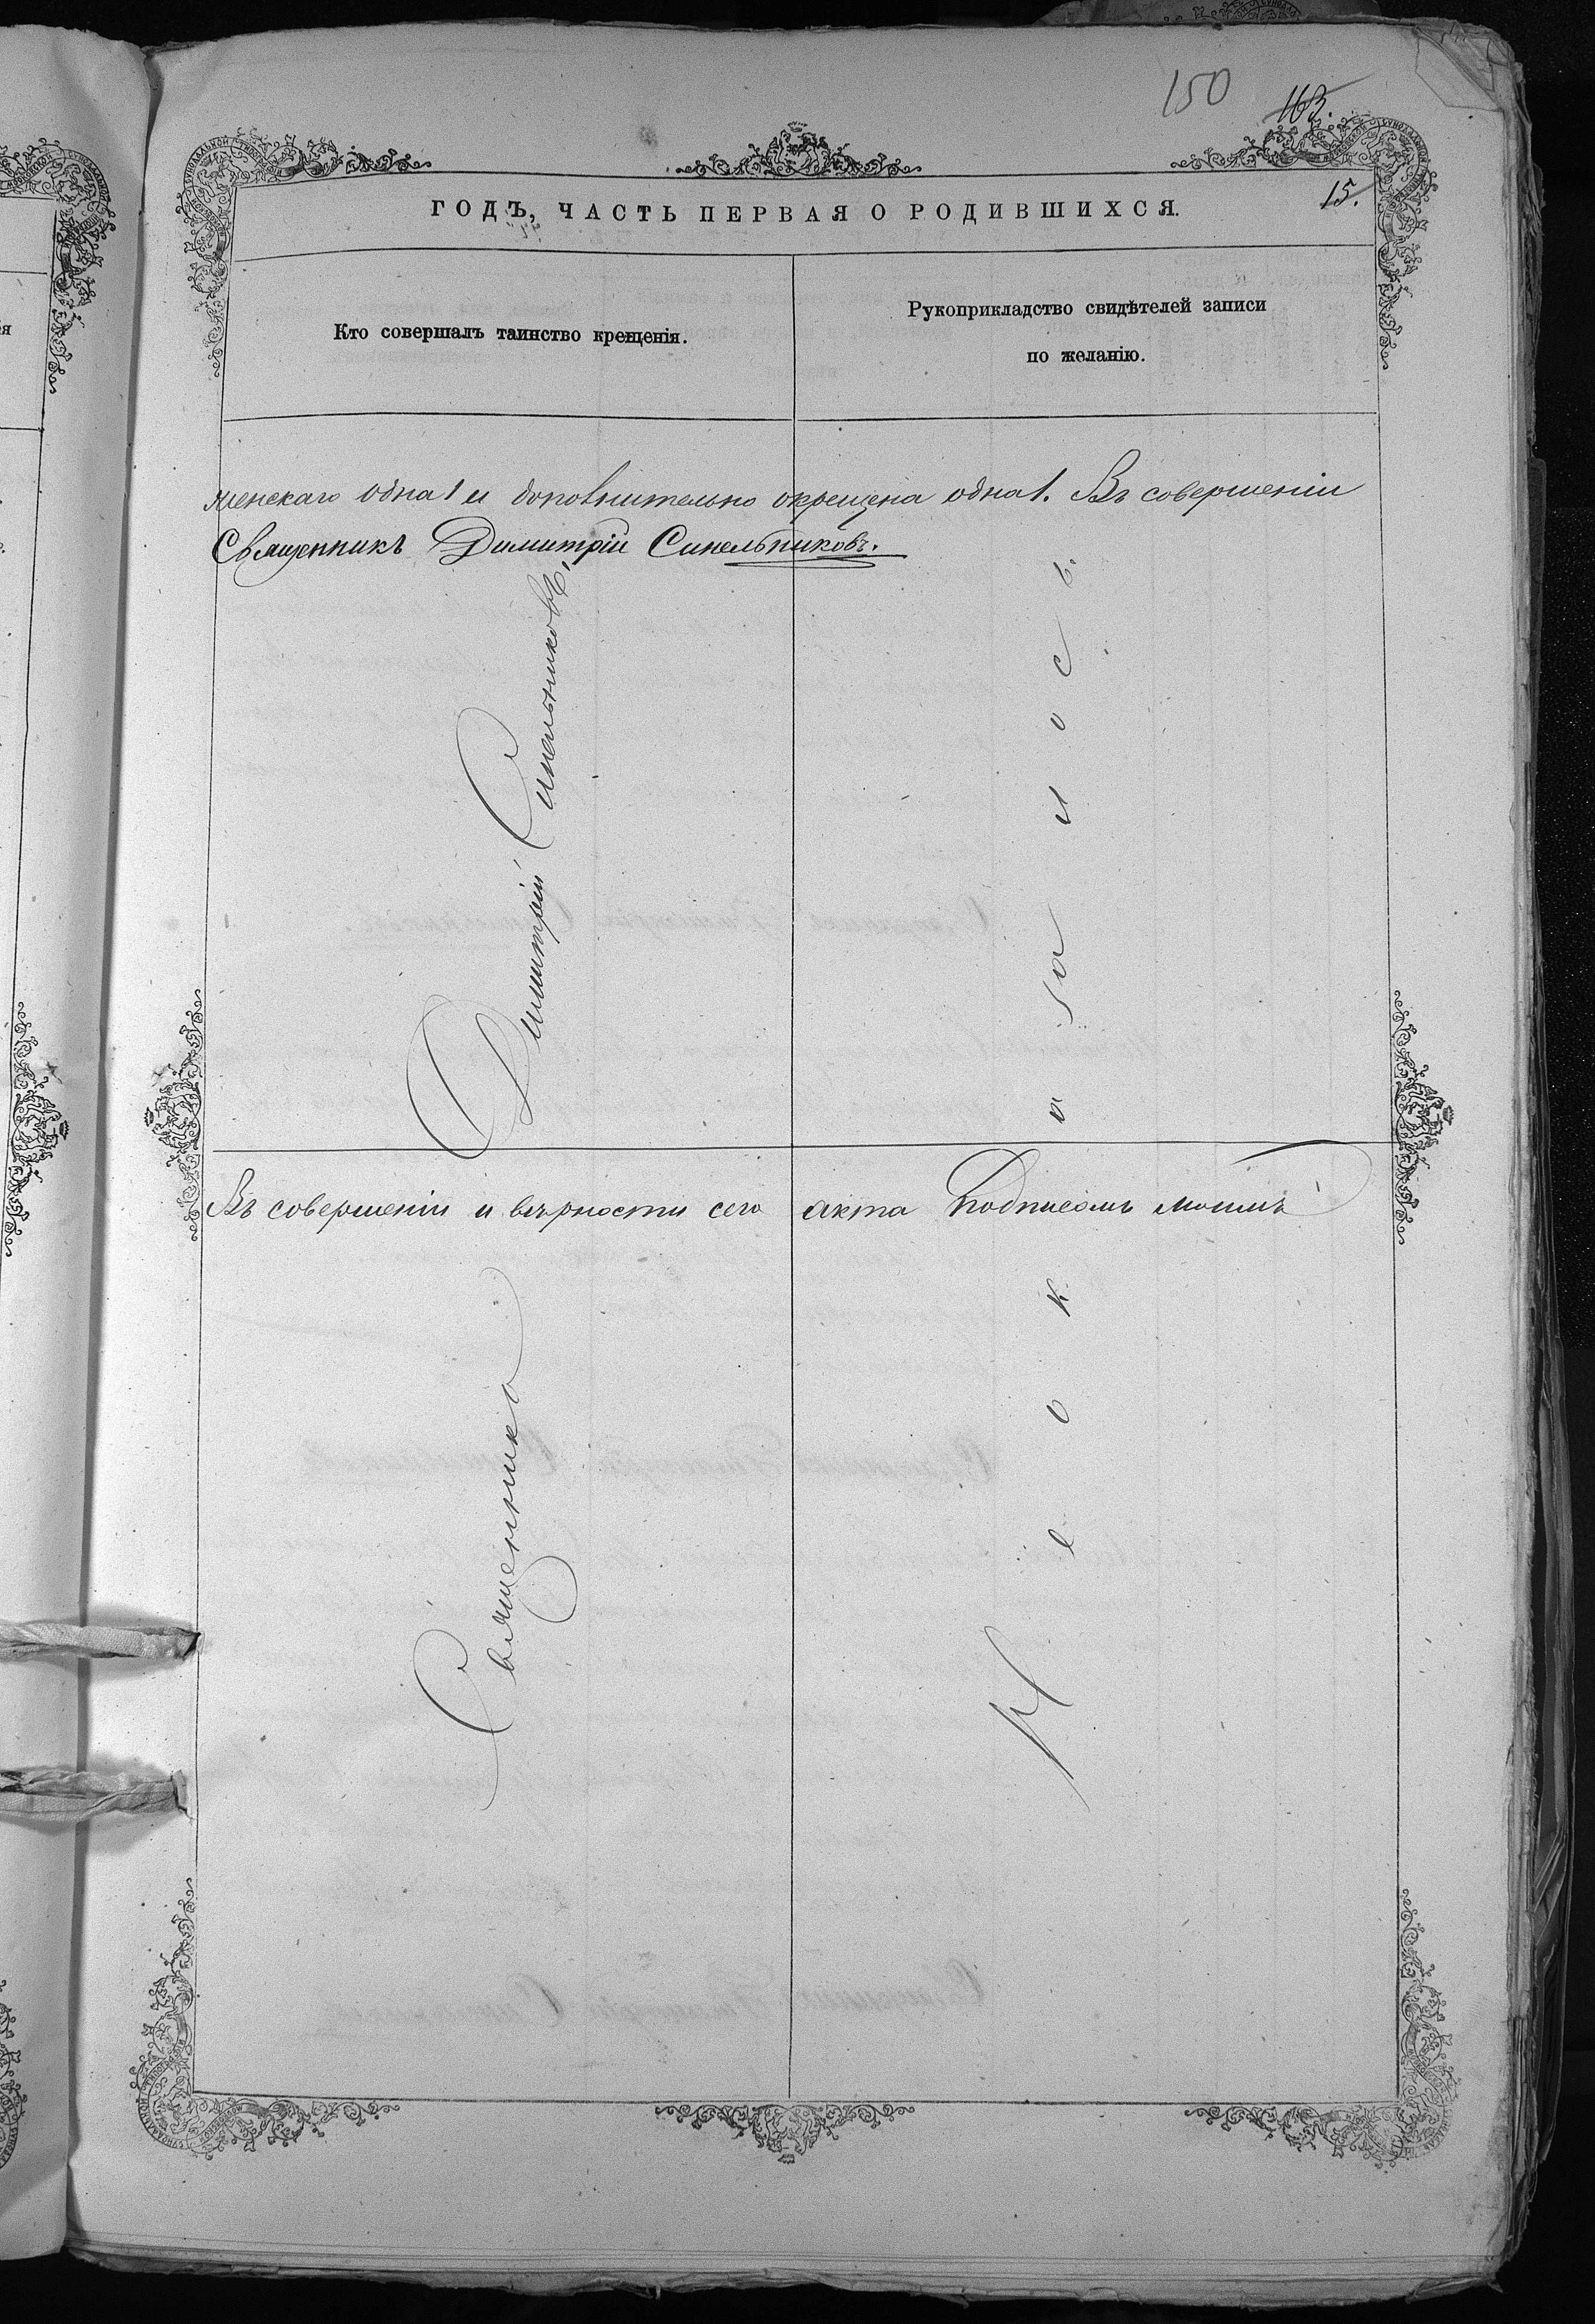 150
163.
15.
ГОДЪ, ЧАСТЬ ПЕРВАЯ О РОДИВШИХСЯ.
Кто совершалъ таинство крещенія.
Рукоприкладство свидѣтелей записи
по желанію.
женскаго одна 1 и дополнительно окрещена одна 1. Въ совершеніи
Священникъ Димитрій Синельниковъ.
Въ совершеніи и вѣрности сего акта подписомъ моимъ
Священникъ Димитрій Синельниковъ,
Не оказалось.